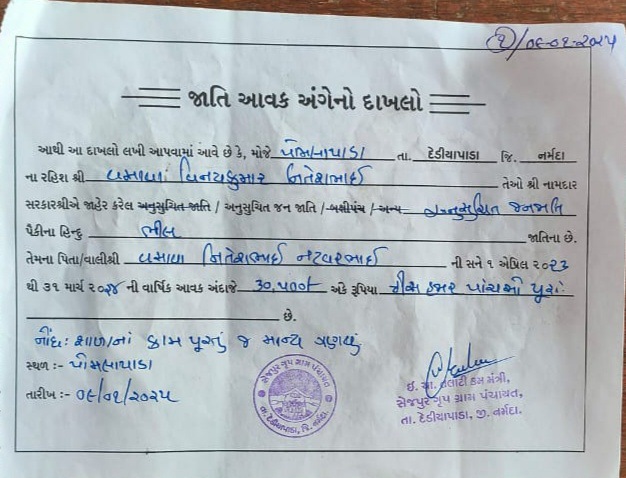 ૧/૦૯-૦૧-૨૦૨૫
જાતિ આવક અંગેનો દાખલો
આથી આ દાખલો લખી આપવામાં આવે છે કે, મોજે પોમલાપાડા તા. દેડીયાપાડા જિ. નર્મદા
ના રહિશ શ્રી વસાવા વિનયકુમાર નિતેશભાઈ તેઓ શ્રી નામદાર
સરકારશ્રીએ જાહેર કરેલ અનુસુચિત જાતિ / અનુસુચિત જન જાતિ / બક્ષીપંચ / અન્ય અનુસુચિત જનજાતિ
પૈકીના હિન્દુ ભીલ જાતિના છે.
તેમના પિતા/વાલીશ્રી વસાવા નિતેશભાઈ નટવરભાઈ ની સને ૧ એપ્રિલ ૨૦૨૩
થી ૩૧ માર્ચ ૨૦૨૪ ની વાર્ષિક આવક અંદાજે ૩૦,૫૦૦/- અંકે રૂપિયા ત્રીસ હજાર પાંચસો પૂરા
છે.
નોંધ: શાળાનાં કામ પૂરતું જ માન્ય ગણવું
સ્થળ :- પોમલાપાડા
તારીખ :- ૦૯/૦૧/૨૦૨૫
સેજપુર ગૃપ ગ્રામ પંચાયત
તા. દેડીયાપાડા, જિ. નર્મદા.
ઇ. ચા. તલાટી કમ મંત્રી,
સેજપુર ગૃપ ગ્રામ પંચાયત,
તા. દેડીયાપાડા, જી. નર્મદા.